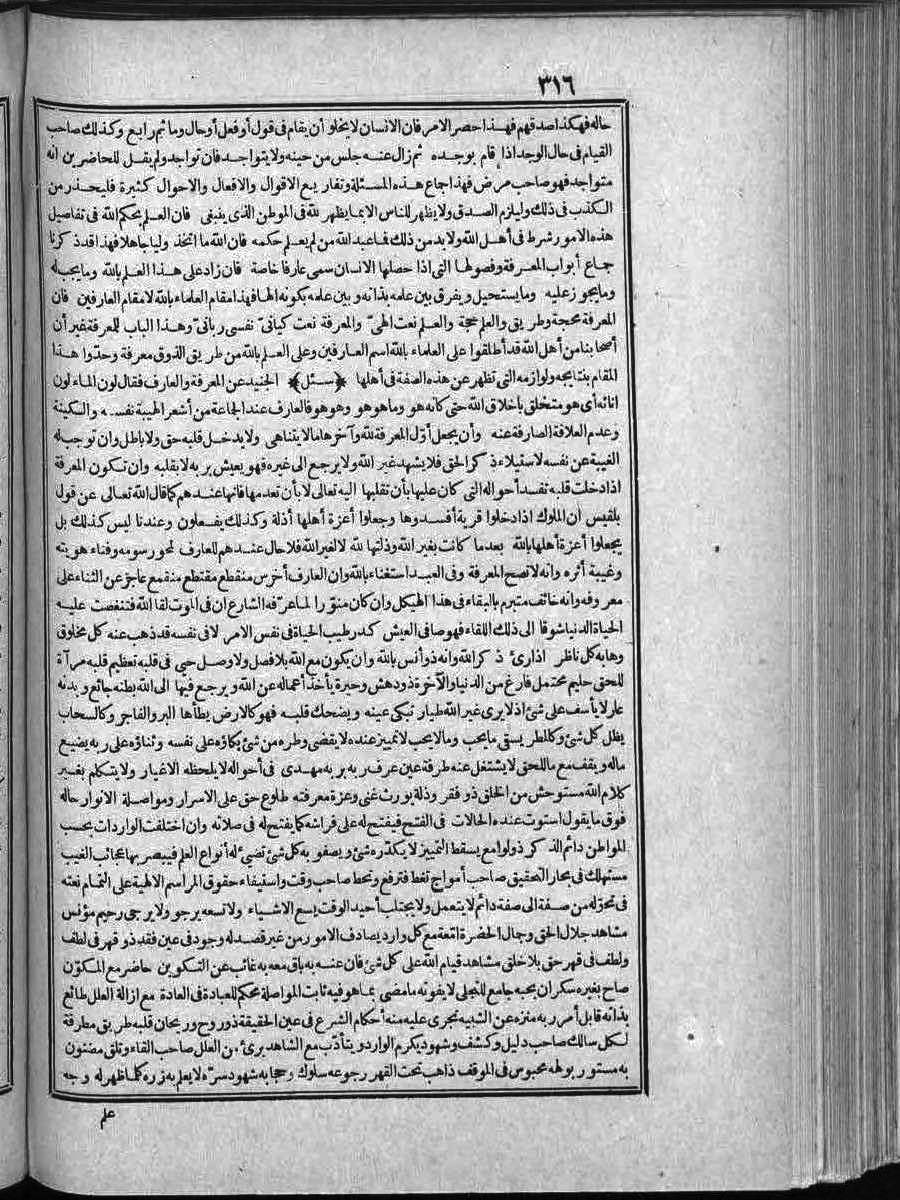 ٣١٦
حاله فهكذا صدقهم فهذا حصر الامر فان الانسان لا يخلو أن يقام فى قول أو فعل أو حال وما ثم رابع وكذلك صاحب
القيام فى حال الوجد اذا قام بوجده ثم زال عنه جلس من حينه ولا يتواجد فان تواجد ولم يقل للحاضرين انه
متواجد فهو صاحب مرض فهذا جماع هذه المسئلة وتفاريع الاقوال والافعال والاحوال كثيرة فليحذر من
الكذب فى ذلك وليلزم الصدق ولا يظهر للناس الا بما يظهر لله فى الموطن الذى ينبغى فان العلم بحكم الله فى تفاصيل
هذه الامور شرط فى أهل الله ولا بد من ذلك فما عبد الله من لم يعلم حكمه فان الله ما اتخذ وليا جاهلا فهذا قد ذكرنا
جماع أبواب المعرفة وفصولها التى اذا حصلها الانسان سمى عارفا خاصة فان زاد على هذا العلم بالله وما يجب له
وما يجوز عليه وما يستحيل ويفرق بين علمه بذاته وبين علمه بكونه الها فهذا مقام العلماء بالله لا مقام العارفين فان
المعرفة محجة وطريق والعلم حجة والعلم نعت الهىّ والمعرفة نعت كيانىّ نفسى ربانىّ وهذا الباب للمعرفة غير أن
أصحابنا من أهل الله قد أطلقوا على العلماء بالله اسم العارفين وعلى العلم بالله من طريق الذوق معرفة وحدّوا هذا
المقام بنتائجه ولوازمه التى تظهر عن هذه الصفة فى أهلها ﴿سئل﴾ الجنيد عن المعرفة والعارف فقال لون الماء لون
انائه أى هو متخلق باخلاق الله حتى كانه هو وما هو هو وهو هو فالعارف عند الجماعة من أشعر الهيبة نفسه والسكينة
وعدم العلاقة الصارفة عنه وأن يجعل أوّل المعرفة لله وآخرها ما لا يتناهى ولا يدخل قلبه حق ولا باطل وان توجب له
الغيبة عن نفسه لاستيلاء ذكر الحق فلا يشهد غير الله ولا يرجع الى غيره فهو يعيش بربه لا بقلبه وان تكون المعرفة
اذا دخلت قلبه تفسد أحواله التى كان عليها بأن تقلبها اليه تعالى لا بأن تعدمها فانها عندهم كما قال الله تعالى عن قول
بلقيس ان الملوك اذا دخلوا قرية أفسدوها وجعلوا أعزة أهلها أذلة وكذلك يفعلون وعندنا ليس كذلك بل
يجعلوا أعزة أهلها بالله بعدما كانت بغير الله وذلتها لله لا لغير الله فلا حال عندهم للعارف لمحو رسومه وفناء هويته
وغيبة أثره وانه لا تصح المعرفة وفى العبد استغناء بالله وان العارف أخرس منقطع مقتطع منقمع عاجز عن الثناء على
معروفه وانه خائف متبرم بالبقاء فى هذا الهيكل وان كان منوّرا لما عرّفه الشارع ان فى الموت لقا الله فتنغصت عليه
الحياة الدنيا شوقا الى ذلك اللقاء فهو صافى العيش كدر طيب الحياة فى نفس الامر لا فى نفسه قد ذهب عنه كل مخلوق
وهابه كل ناظر اذا رىء ذكر الله وانه ذو أنس بالله وان يكون مع الله بلا فصل ولا وصل حيى فى قلبه تعظيم قلبه مرآة
للحق حليم محتمل فارغ من الدنيا والآخرة ذو دهش وحيرة يأخذ أعماله عن الله ويرجع فيها الى الله بطنه جائع وبدنه
عار لا يأسف على شئ اذ لا يرى غير الله طيار تبكى عينه ويضحك قلبه فهو كالارض يطأها البر والفاجر وكالسحاب
يظل كل شئ وكالمطر يسقى ما يحب وما لا يحب لا تمييز عنده لا يقضى وطره من شئ بكاؤه على نفسه وثناؤه على ربه يضيع
ماله ويقف مع ما للحق لا يشتغل عنه طرفة عين عرف ربه بربه مهدى فى أحواله لا يلحظه الاغيار ولا يتكلم بغير
كلام الله مستوحش من الخلق ذو فقر وذلة يورث غنى وعزة معرفته طلوع حق على الاسرار ومواصلة الانوار حاله
فوق ما يقول استوت عنده الحالات فى الفتح فيفتح له على فراشه كما يفتح له فى صلاته وان اختلفت الواردات بحسب
المواطن دائم الذكر ذو لوامع يسقط التمييز لا يكدّره شئ ويصفو به كل شئ تضىء له أنواع العلم فيبصر بها عجائب الغيب
مستهلك فى بحار التحقيق صاحب أمواج تغط فترفع وتحط صاحب وقت واستيفاء حقوق المراسم الالهية على التمام نعته
فى تحوّله من صفة الى صفة دائم لا يتعمل ولا يجتلب أحيد الوقت يسع الاشياء ولا تسعه يرجو ولا يرجى رحيم مؤنس
مشاهد جلال الحق وجمال الحضرة امّعة مع كل وارد يصادف الامور من غير قصد له وجود فى عين فقد ذو قهر فى لطف
ولطف فى قهر حق بلا خلق مشاهد قيام الله على كل شئ فان عنه به باق معه به غائب عن التكوين حاضر مع المكوّن
صاح بغيره سكران بحبه جامع للتجلى لا يفوته ما مضى بما هو فيه ثابت المواصلة محكم للعبادة فى العادة مع ازالة العلل طائع
بذاته قابل أمر ربه منزه عن الشبيه تجرى عليه منه أحكام الشرع فى عين الحقيقة ذو روح وريحان قلبه طريق مطرقة
لكل سالك صاحب دليل وكشف وشهود يكرم الوارد ويتأدّب مع الشاهد برىء من العلل صاحب القاء وتلق مضنون
به مستور بوله محبوس فى الموقف ذاهب تحت القهر رجوعه سلوك وحجابه شهود سرّه لا يعلم به زره كلما ظهر له وجه
علم